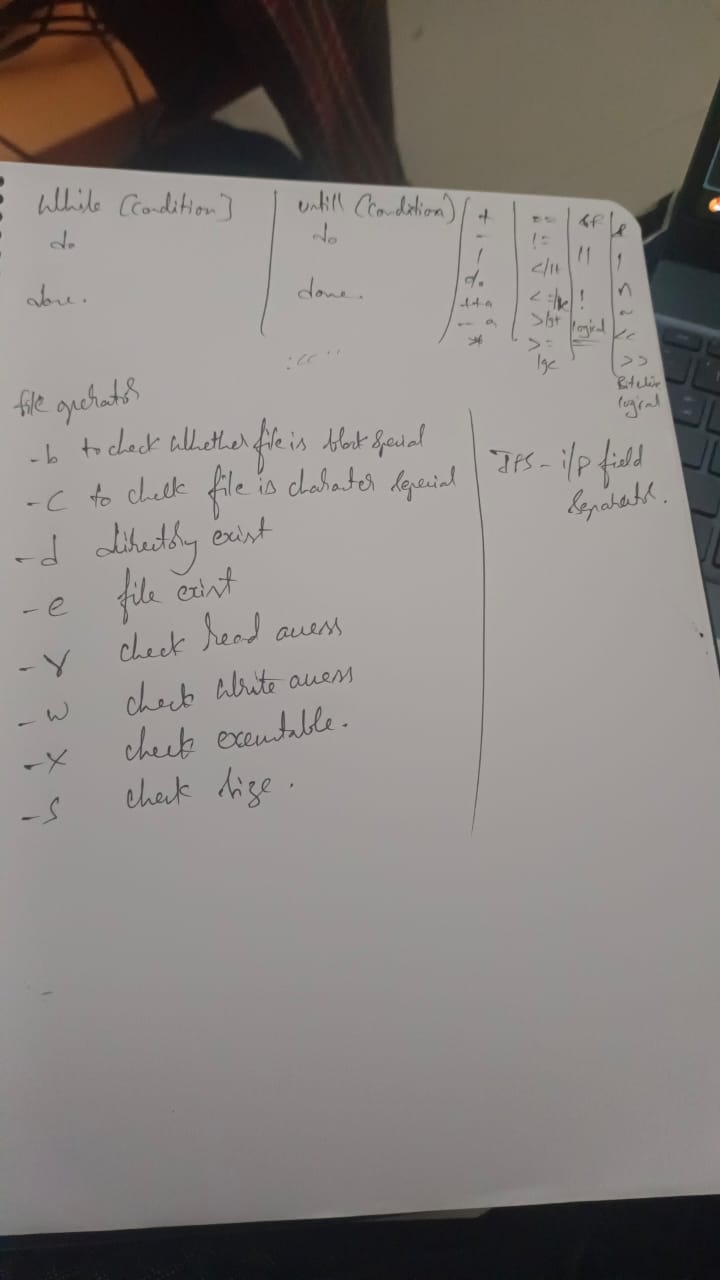 While [Condition]
do
done.
untill (Condition)
do
done.
+
-
/
%
++a
-- a
*
==
!=
</lt
<=/le
>/gt
>=
/ge
&&
||
!
logical
&
|
^
~
<<
>>
Bitwise
logical
: << ''
file operator
-b to check whether file is block special
-c to check file is character special
-d directory exist
-e file exist
-r check read access
-w check write access
-x check executable.
-s check size.
IFS - i/p field
separator.